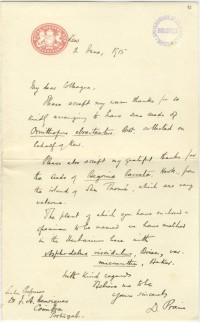 Kew
2 June, 1915
My dear Colleague,
Please accept my warm thanks for so
kindly arranging to have some seeds of
Ornithopus ebracteatus, Brot. collected on
behalf of Kew.
Please also accept my grateful thanks for
the seeds of Begonia baccata, Hook. from
the island of San Thomé, which are very
welcome.
The plant of which you have enclosed a
specimen to be named we have matched
in the Herbarium here with
Asphodelus Boiss. var.
Baker.
With kind regards
Believe me to be
Yours sincerely
D. Prain
Professor
Dr. J. A. Henriques
Coimbra
Portugal.